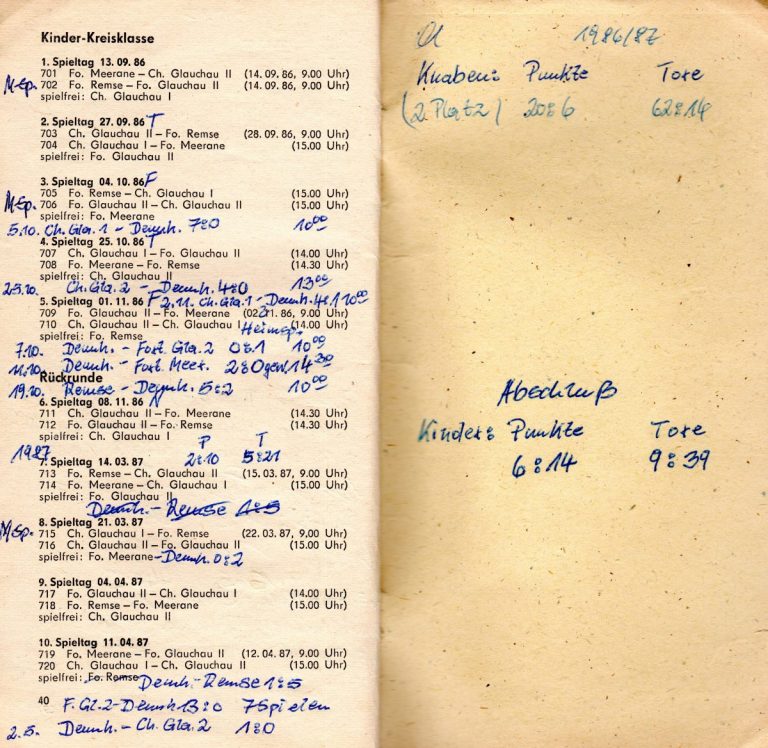 Kinder-Kreisklasse
1. Spieltag 13.09.86
701 Fo. Meerane – Ch. Glauchau II (14.09.86, 9.00 Uhr)
M-Sp. 702 Fo. Remse – Fo. Glauchau II (14.09.86, 9.00 Uhr)
spielfrei: Ch. Glauchau I
2. Spieltag 27.09.86 T
703 Ch. Glauchau II – Fo. Remse (28.09.86, 9.00 Uhr)
704 Ch. Glauchau I – Fo. Meerane (15.00 Uhr)
spielfrei: Fo. Glauchau II
3. Spieltag 04.10.86 F
705 Fo. Remse – Ch. Glauchau I (15.00 Uhr)
M-Sp. 706 Fo. Glauchau II – Ch. Glauchau II (15.00 Uhr)
spielfrei: Fo. Meerane
5.10. Ch. Gla. 1 – Dennh. 7:0 10⁰⁰
4. Spieltag 25.10.86 T
707 Ch. Glauchau I – Fo. Glauchau II (14.00 Uhr)
708 Fo. Meerane – Fo. Remse (14.30 Uhr)
spielfrei: Ch. Glauchau II
Ch. Gla. 2 – Dennh. 4:0 13⁰⁰
5. Spieltag 01.11.86 F 2.11. Ch. Gla. 1 – Dennh. 4:1 10⁰⁰
709 Fo. Glauchau II – Fo. Meerane
710 Ch. Glauchau II – Ch. Glauchau I (14.00 Uhr)
spielfrei: Fo. Remse Heimsp.
7.10. Dennh. – Fort. Gla. 2 0:1 10⁰⁰
11.10. Dennh. – Fort. Meer. 2:0 gew. 14³⁰
Rückrunde
19.10. Remse – Dennh. 5:2 10⁰⁰
6. Spieltag 08.11.86
711 Ch. Glauchau II – Fo. Meerane (14.30 Uhr)
712 Fo. Glauchau II – Fo. Remse (14.30 Uhr)
spielfrei: Ch. Glauchau I P T
1987 2:10 5:21
7. Spieltag 14.03.87
713 Fo. Remse – Ch. Glauchau II (15.03.87, 9.00 Uhr)
714 Fo. Meerane – Ch. Glauchau I (15.00 Uhr)
spielfrei: Fo. Glauchau II
Dennh. – Remse 1:5
8. Spieltag 21.03.87
M-Sp. 715 Ch. Glauchau I – Fo. Remse (22.03.87, 9.00 Uhr)
716 Ch. Glauchau II – Fo. Glauchau II (15.00 Uhr)
spielfrei: Fo. Meerane – Dennh. 0:2
9. Spieltag 04.04.87
717 Fo. Glauchau II – Ch. Glauchau I (14.00 Uhr)
718 Fo. Remse – Fo. Meerane (15.00 Uhr)
spielfrei: Ch. Glauchau II
10. Spieltag 11.04.87
719 Fo. Meerane – Fo. Glauchau II (12.04.87, 9.00 Uhr)
720 Ch. Glauchau I – Ch. Glauchau II (15.00 Uhr)
spielfrei: Fo. Remse Dennh. – Remse 1:5
40 F. Gl. 2 – Dennh 13:0 7 Spielen
2.5. Dennh. – Ch. Gla. 2 1:0
1986/87
Knaben: Punkte Tore
(2. Platz) 20:6 62:14
Abschluß
Kinder: Punkte Tore
6:14 9:39